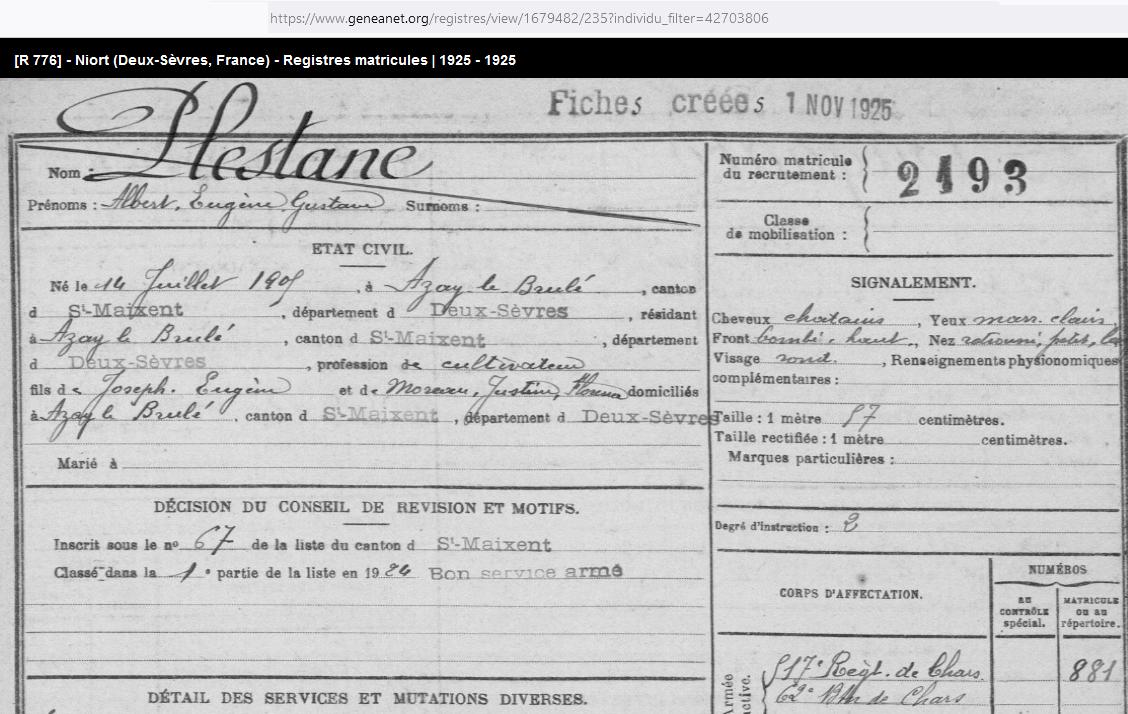 https://www.geneanet.org/registres/view/1679482/235?individu_filter=42703806
[R 776] - Niort (Deux-Sèvres, France) - Registres matricules | 1925 - 1925
Fiches créées 1 NOV 1925
Nom :
Prénoms : Albert, Eugène Gustave Surnoms :
ETAT CIVIL.
Né le 14 Juillet 190 , à Azay le Brulé , canton
d St-Maixent , département d Deux-Sèvres , résidant
à Azay le Brulé , canton d St-Maixent , département
d Deux-Sèvres , profession de cultivateur
fils de Joseph. Eugène et de Moreau, Justine, domiciliés
à Azay le Brulé , canton d St-Maixent , département d Deux-Sèvres
Marié à
DÉCISION DU CONSEIL DE REVISION ET MOTIFS.
Inscrit sous le no 67 de la liste du canton d St-Maixent
Classé dans la 1e partie de la liste en 19 Bon service armé
DÉTAIL DES SERVICES ET MUTATIONS DIVERSES.
Numéro matricule du recrutement : 2193
Classe de mobilisation :
SIGNALEMENT.
Cheveux chatains , Yeux marr. clairs
Front bombé, haut , Nez petit,
Visage rond. , Renseignements physionomiques
complémentaires :
Taille : 1 mètre 57 centimètres.
Taille rectifiée : 1 mètre centimètres.
Marques particulières :
Degré d'instruction : 2
CORPS D'AFFECTATION.
NUMÉROS
AU CONTRÔLE spécial.
MATRICULE OU AU répertoire.
Armée active.
517e Regt. de Chars. 881
62e Bon de Chars